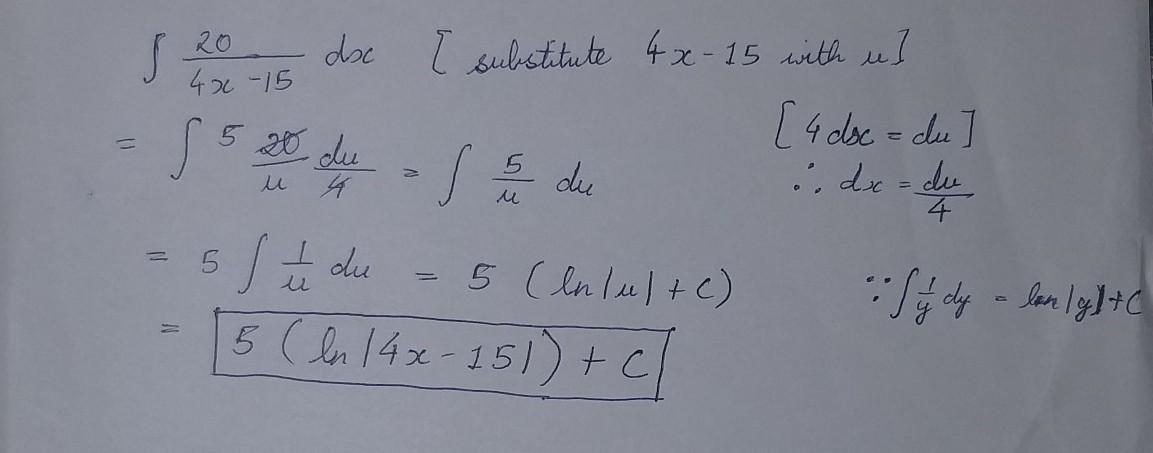 ∫ 20/(4x-15) dx [substitute 4x-15 with u]
[4dx = du]
= ∫ 5 20/u du/4 = ∫ 5/u du
∴ dx = du/4
= 5 ∫ 1/u du = 5 (ln|u| + C)
∵ ∫ 1/y dy = ln|y| + C
= 5 (ln|4x-15|) + C